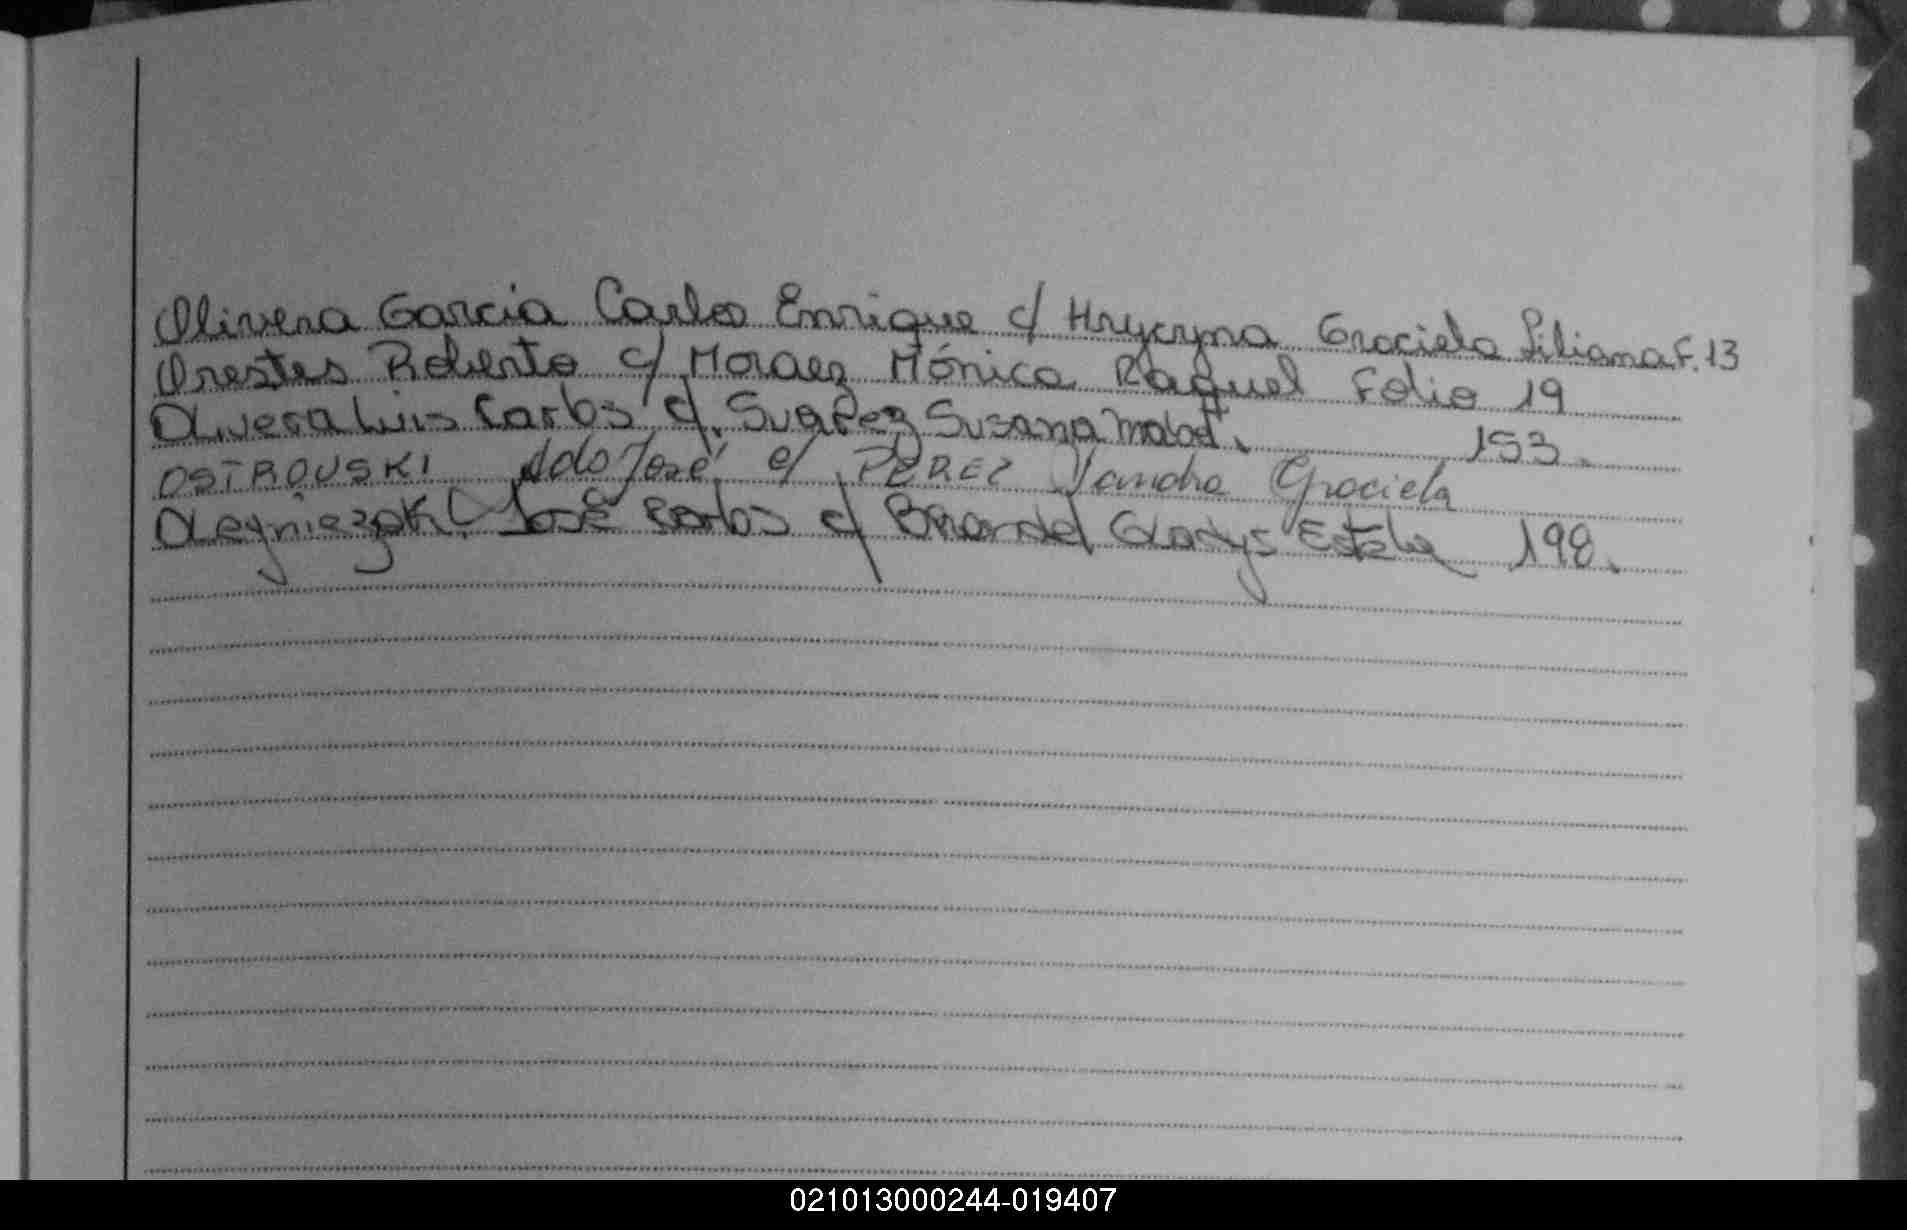 Olivera Garcia Carlos Enrique c/ Hrycyna Graciela Liliana F. 13
Orestes Roberto c/ Moraez Mónica Raquel Folio 19
Olivera Luis Carlos c/. Suarez Susana Mabel. 153.
OSTROUSKI Aldo José c/ PEREZ Sandra Graciela
José Carlos c/ Gladys Estela 198.
021013000244-019407